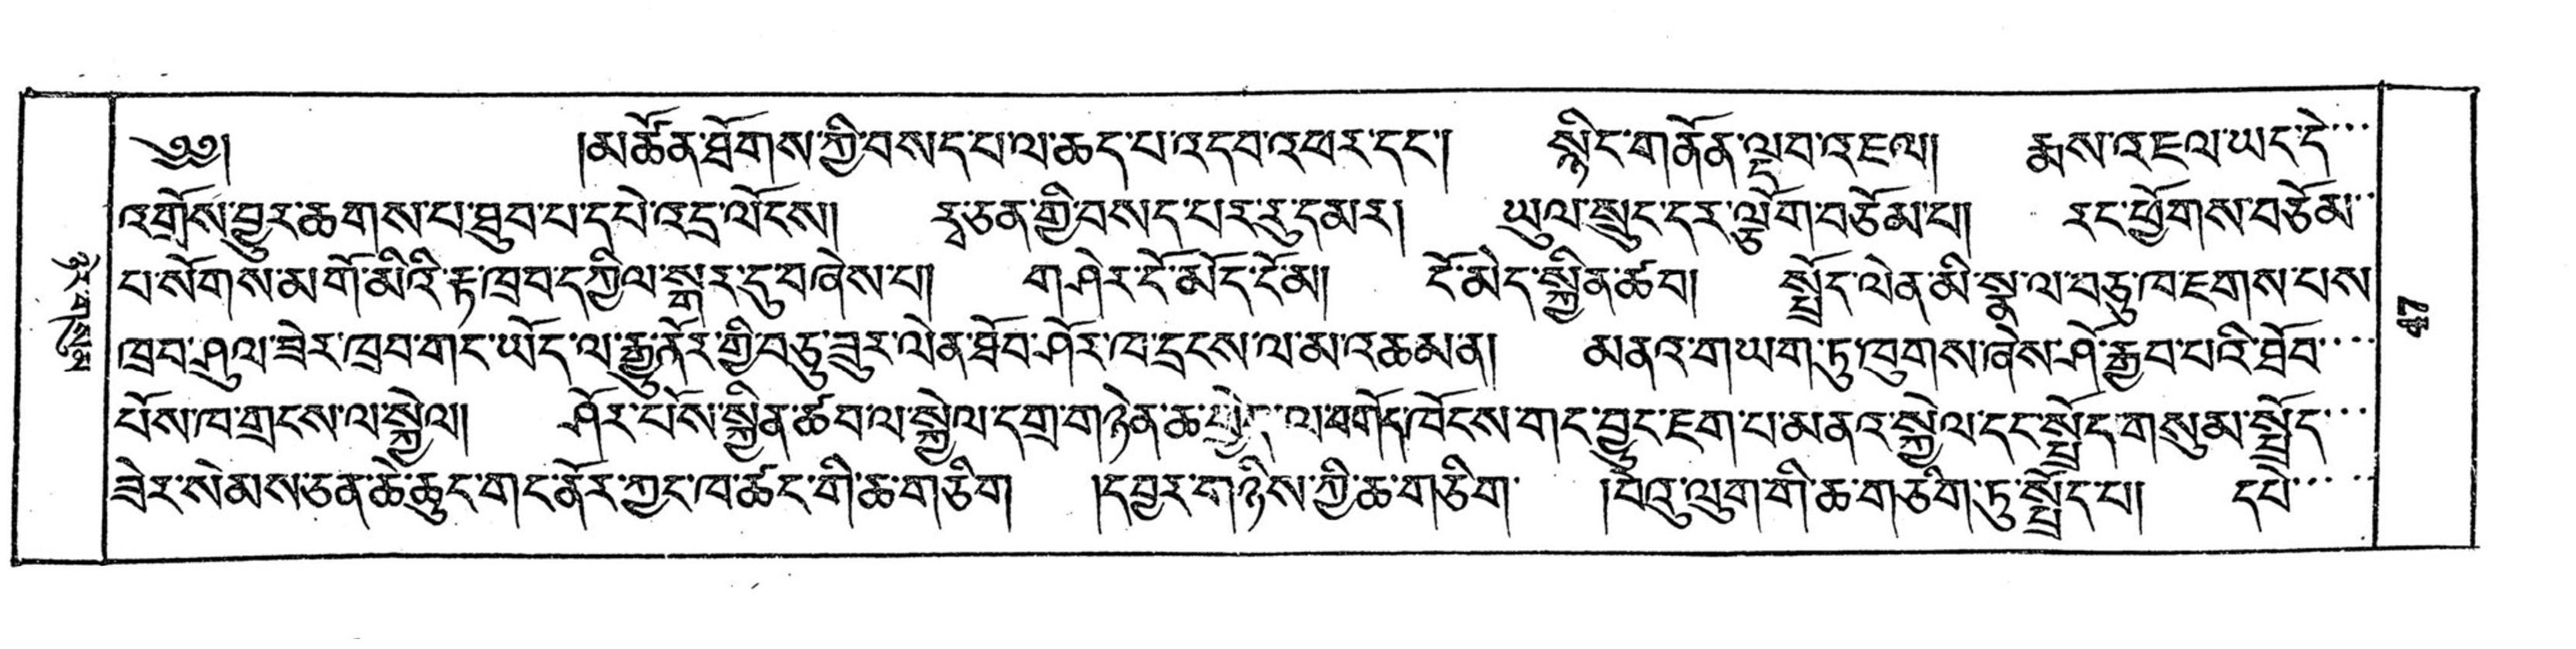 ༄༅། །མ་ཚོན་ཐོགས་ཀྱི་བསད་པ་ལ་ཆད་པ་འདབ་འཕར་དང་། སྙིང་གནོན་ལྡབ་འཇལ། རྨས་འཇལ་ཡང་དེ
འགྲོས་བྱུར་ཆགས་པ་ཐུབ་པ་དཔེ་འདྲ་ལོངས། རྭ་ཅན་གྱི་བསད་པར་རུ་དམར། ཡུལ་སྲུང་དར་ལྕོག་བཅོམ་པ། རང་ཕྱོགས་བཅོམ
པ་སོགས་མགོ་མིའི་རྟ་ཁྲབ་དཀྱིལ་སྒར་དུ་བཞེས་པ། གཤེར་ངོ་མོད་ངོམ། ངོ་མེད་སྐྱིན་ཚབ། སྤྲོད་ལེན་མི་སྣ་ལ་བཅུ་ཁ་ཇགས་པས
ཁྲབ་ཤུལ་ཟེར་ཁྲབ་གང་ཡོད་ལ་རྒྱུ་ནོར་གྱི་བཅུ་ཟུར་ལེན་ཐོབ་ཤོར་ཁ་དྲངས་ལ་མ་འཆམན། མནའ་གཡག་ཏུ་ཁུགས་ཞེས་ཤོ་རྒྱབ་པའི་ཐོབ
པོས་ཁ་གྲངས་ལ་སྐྱེལ། ཤོར་པོས་སྐྱིན་ཚབ་ལ་སྐྱེལ་དགྲ་གཉེན་ཆ་ ལ་བགོད་ཁོངས་གང་བྱུང་ཇག་པ་མནའ་སྐྱེལ་དང་སྤྲོད་གསུམ་སྤྲོད
ཟེར་སེམས་ཅན་ཆེ་ཆུང་གང་ནོར་ཀྱང་ཁ་ཚང་གི་ཆ་གཅིག །དབྱར་གཉིས་ཀྱི་ཆ་གཅིག །བེའུ་ལུག་གི་ཆ་གཅིག་ཏུ་སྤྲོད་པ། དཔེ